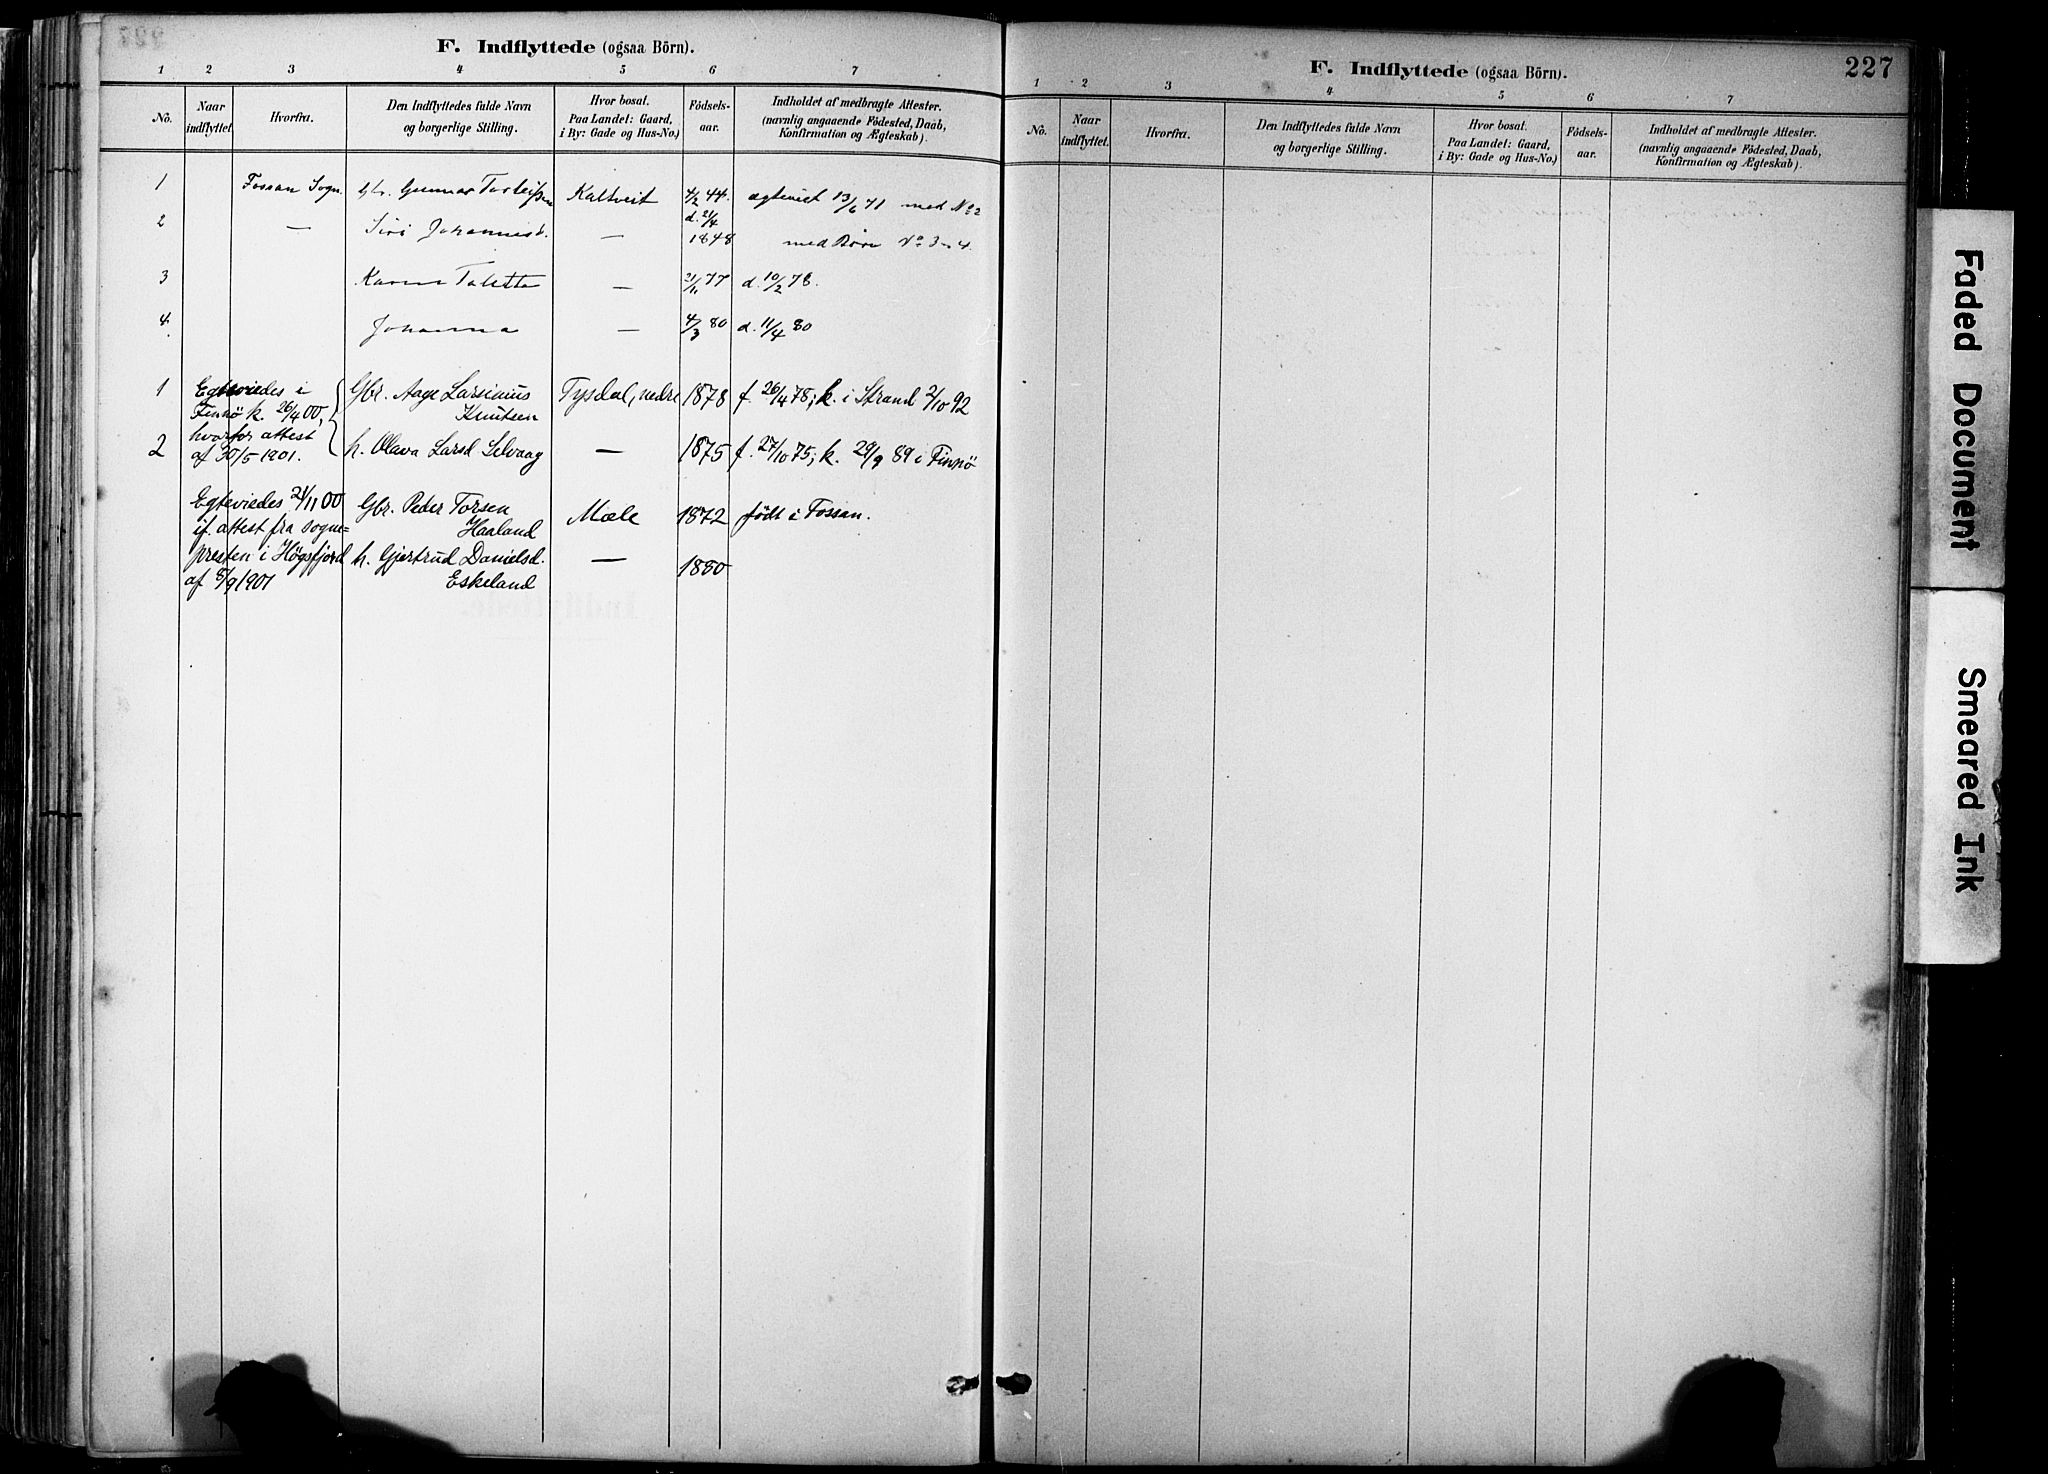 F. Indflyttede (ogsaa Börn).
1 2 3 4 5 6 7
No.
Naar
indflyttet.
Hvorfra.
Den Indflyttedes fulde Navn
og borgerlige Stilling.
Hvor bosat.
Paa Landet: Gaard,
i By: Gade og Hus-No.)
Födsels-
aar.
Indholdet af medbragte Attester.
(navnlig angaaende Födested, Daab,
Konfirmation og Ægteskab).
1 Fossan Sogn. Gbr. Gunnar Torleifsen Kaltveit 4/2 44. ægteviet 13/6 71 med No 2
2 — Siri Johannesd. — d. 21/4 1848 med Børn No 3 - 4.
3 Karen Taletta — 21/11 77 d. 10/2 78.
4. Johanna — 4/3 80 d. 11/4 80
1 Egteviedes i Gbr. Aage Larsinius Tysdal, nedre 1878 f. 26/4 78; k. i Strand 2/10 92
Finnö k. 26/4 00, Knutsen
hvorfor attest
2 af 30/5 1901. h. Olava Larsd Selvaag — 1875 f. 27/10 75; k. 29/9 89 i Finnö
Egteviedes 21/11 00 Gbr. Peder Torsen Mæle 1872 født i Fossan.
if. attest fra sogne- Haaland
presten i Høgsfjord h. Gjertrud Danielsd. — 1880
af 5/9 1901 Eskeland
227
F. Indflyttede (ogsaa Börn).
1 2 3 4 5 6 7
No.
Naar
indflyttet.
Hvorfra.
Den Indflyttedes fulde Navn
og borgerlige Stilling.
Hvor bosat.
Paa Landet: Gaard,
i By: Gade og Hus-No.)
Födsels-
aar.
Indholdet af medbragte Attester.
(navnlig angaaende Födested, Daab,
Konfirmation og Ægteskab).
Faded Document
Smeared Ink